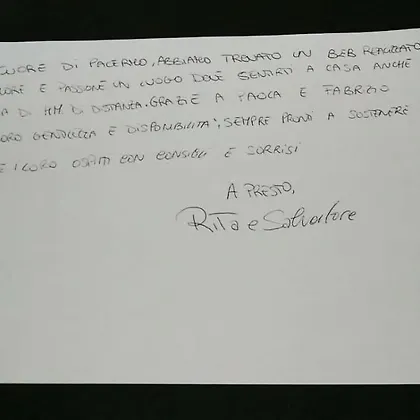 CUORE DI PALERMO, ABBIAMO TROVATO UN B&B REALIZZATO
E PASSIONE UN LUOGO DOVE SENTIRTI A CASA ANCHE
A DI KM. DI DISTANZA. GRAZIE A PAOLA E FABRIZIO
LORO GENTILEZZA E DISPONIBILITA', SEMPRE PRONTI A SOSTENERE
E I LORO OSPITI CON CONSIGLI E SORRISI
A PRESTO,
Rita e Salvatore